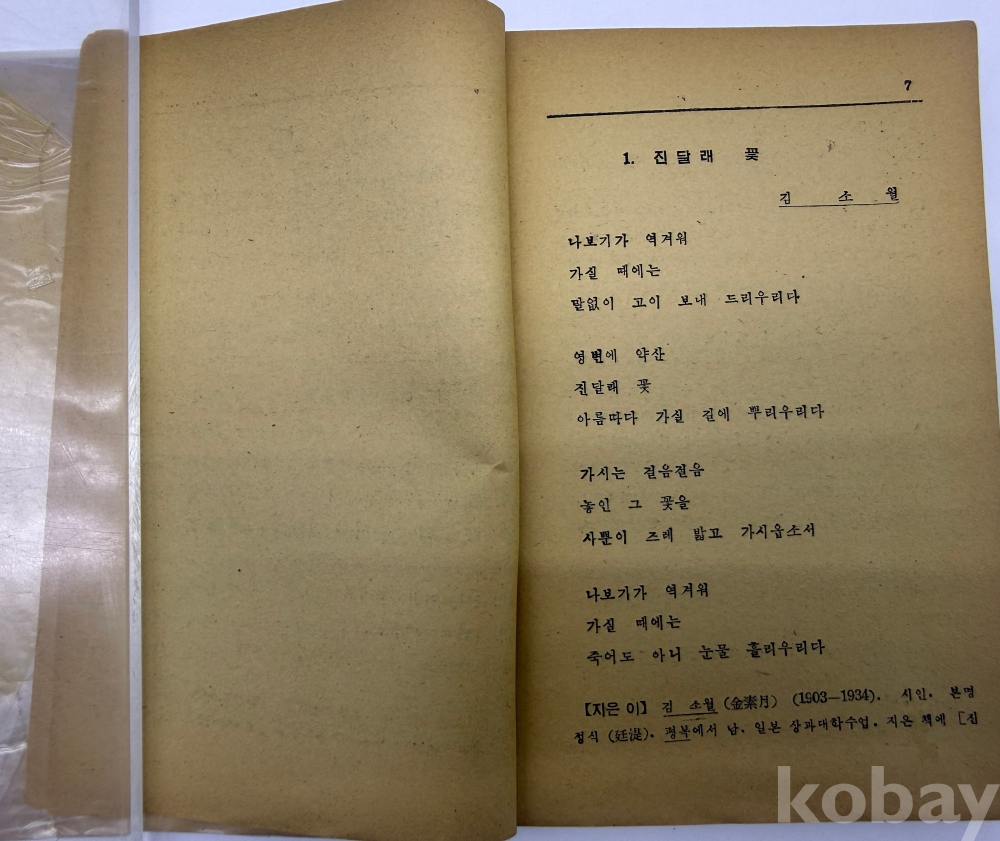 7
1. 진달래 꽃
김 소 월
나보기가 역겨워
가실 때에는
말없이 고이 보내 드리우리다
영변에 약산
진달래 꽃
아름따다 가실 길에 뿌리우리다
가시는 걸음걸음
놓인 그 꽃을
사뿐이 즈레 밟고 가시옵소서
나보기가 역겨워
가실 때에는
죽어도 아니 눈물 흘리우리다
【지은 이】 김 소월 (金素月) (1903—1934). 시인. 본명
정식 (廷湜). 평북에서 남. 일본 상과대학수업. 지은 책에 [진
kobay